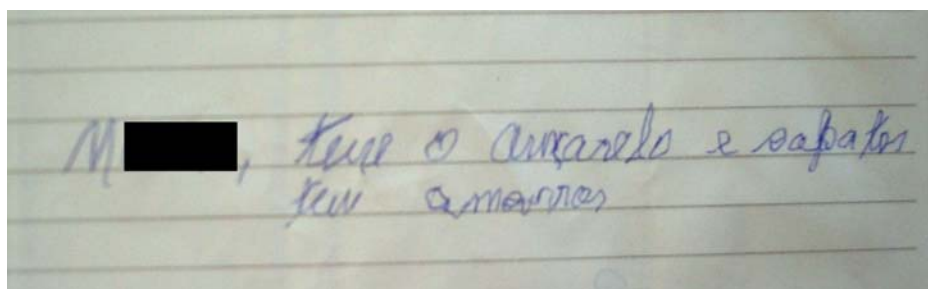 M , teve o amarelo e sapatos
teve amarras